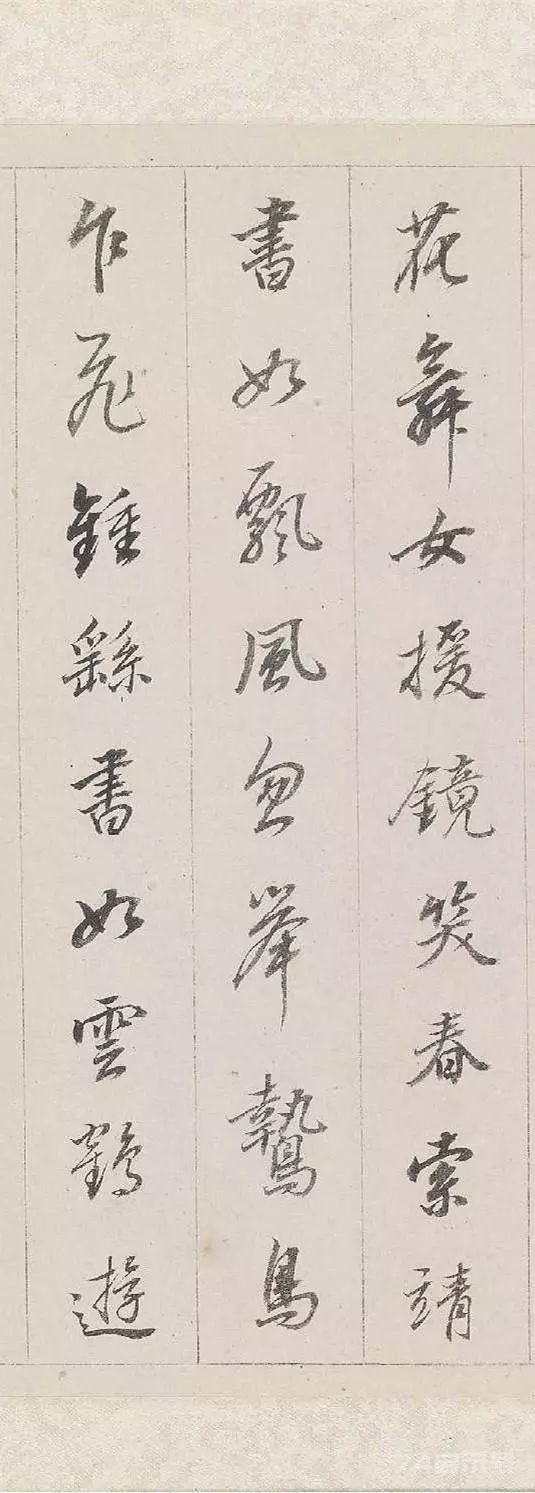 花舞女援鏡笑春索靖
書如飄風忽舉鷙鳥
乍飛鍾繇書如雲鶴遊